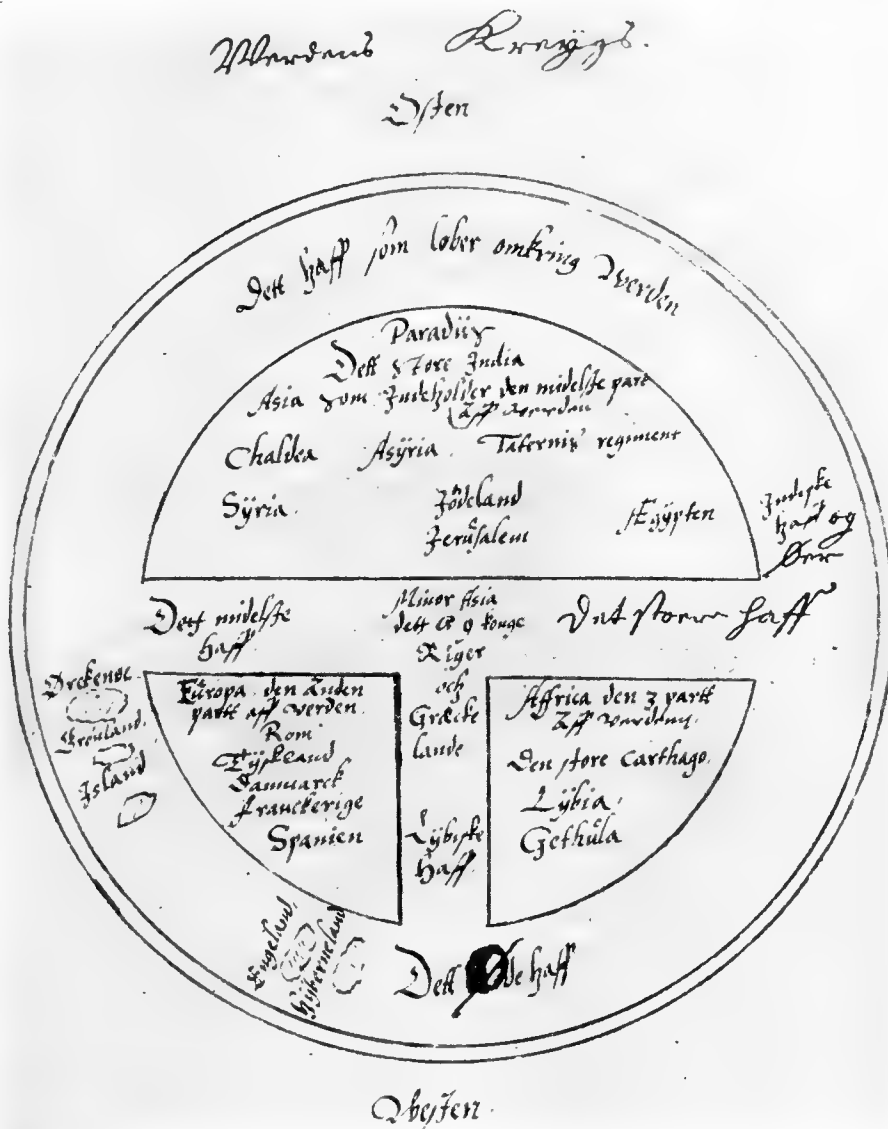 Werdens Kreÿgs.
Osten
Dett haff som løber omkring Werden
Paradiiß
Dett store India
Asia som Indeholder den midelste part
aff werden
Chaldea Asÿria. Taternis regiment
Sÿria. Jødeland Ægÿpten
Jerusalem
Indiske
haff og
Øer
Dett midelste
haff.
Minor Asia
dett er 9 konge
Riger
och
Græcke
lande
Det store haff
Ørckenøe.
Grønland.
Island
Europa den anden
partt aff werden.
Rom
Tÿskland
Danmarck
Franckerige
Spanien
Affrica den 3 partt
aff werden.
Den store Carthago.
Lÿbia.
Gethula
Lÿbiske
haff.
Engeland.
Hÿberneland
Dett øde haff
Westen.